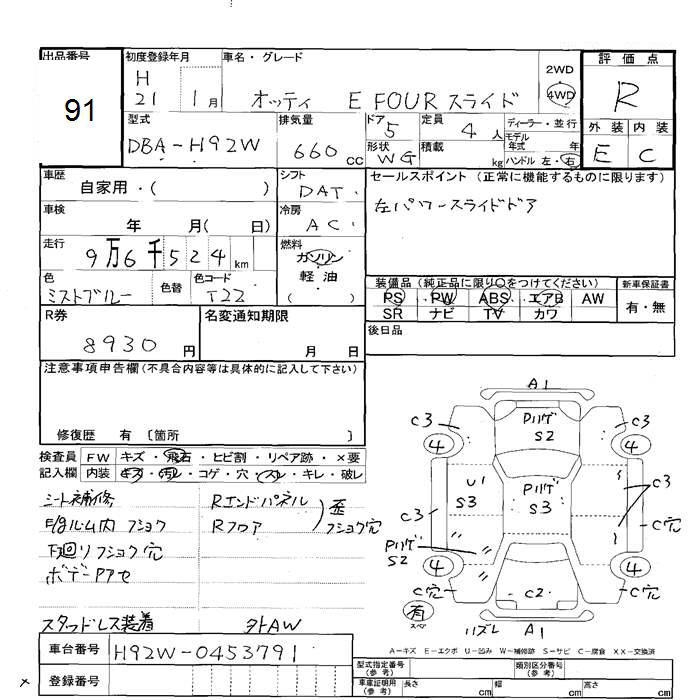 出品番号 初度登録年月 車名・グレード 2WD 評価点
91 H 21 1月 オッティ E FOUR スライド 4WD R
型式 排気量 ドア 5 定員 4人 ディーラー・並行 外装 内装
DBA-H92W 660cc 形状 WG 積載 kg モデル年式 年 ハンドル 左・右 E C
車歴 シフト セールスポイント (正常に機能するものに限ります)
自家用・( ) DAT 左パワースライドドア
車検 年 月( 日) 冷房 AC
走行 9万6千524km 燃料 ガソリン
軽油
( )
色 ミストブルー 色替 色コード T22
装備品 (純正品に限り〇をつけてください) 新車保証書
PS PW ABS エアB AW 有・無
SR ナビ TV カワ
R券 8930円 名変通知期限 月 日 後日品
注意事項申告欄 (不具合内容等は具体的に記入して下さい)
修復歴 有 〔箇所 〕
検査員 FW キズ・飛石・ヒビ割・リペア跡・×要
記入欄 内装 キズ・汚レ・コゲ・穴・スレ・キレ・破レ
シート補修 Rエンドパネル 歪
ルーム内フショク Rフロア フショク穴
下廻リフショク穴
ボデーPアセ
スタッドレス装着 外AW
車台番号 H92W-0453791
登録番号
A1
C3 Pハゲ S2 C3
4 4
U1 S3 Pハゲ S3 C3
C3 C穴
Pハゲ S2
4 4
C穴 C2 C穴
有 スペア ハズレ A1
A-キズ E-エクボ U-凹み W-補修跡 S-サビ C-腐食 XX-交換済
型式指定番号 (参考) 類別区分番号 (参考)
車庫証明用 (参考) 長さ cm 幅 cm 高さ cm